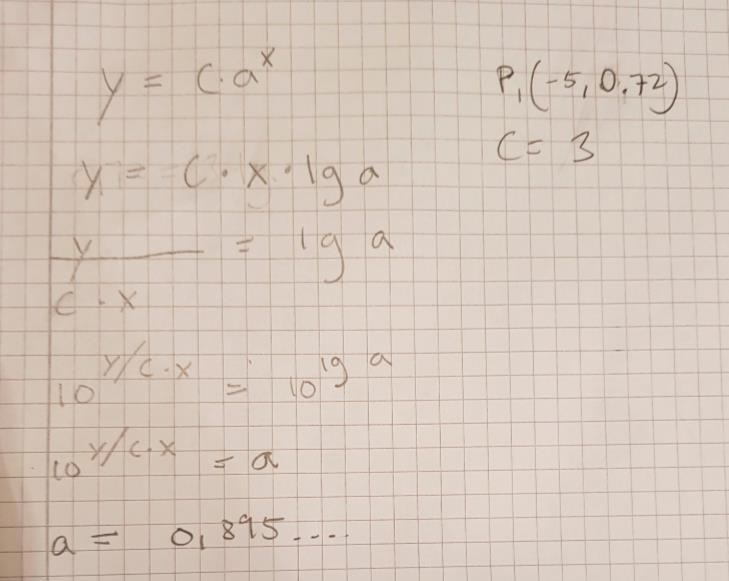 y = C·a^x
P₁(-5, 0.72)
C = 3
y = C·x·lg a
y/(C·x) = lg a
10^(y/C·x) = 10^(lg a)
10^(y/C·x) = a
a = 0,895....